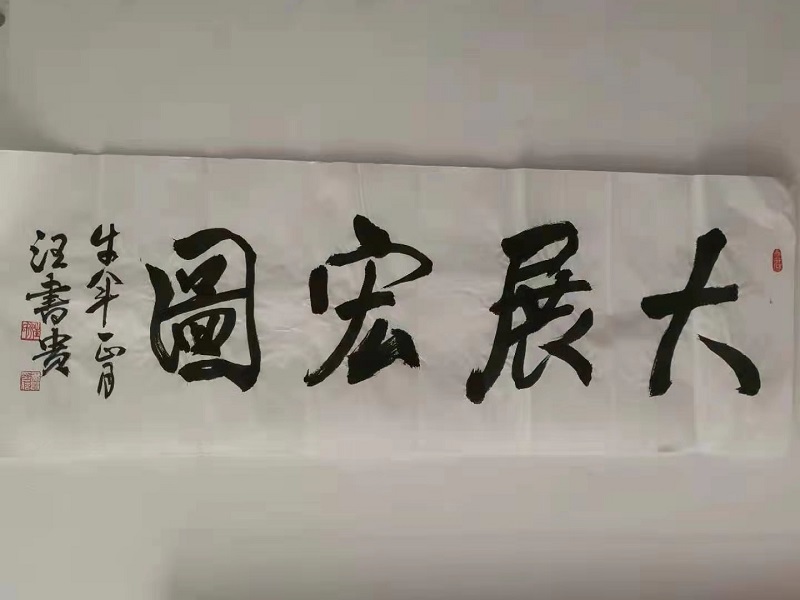 大展宏圖
牛年正月
汪書贵